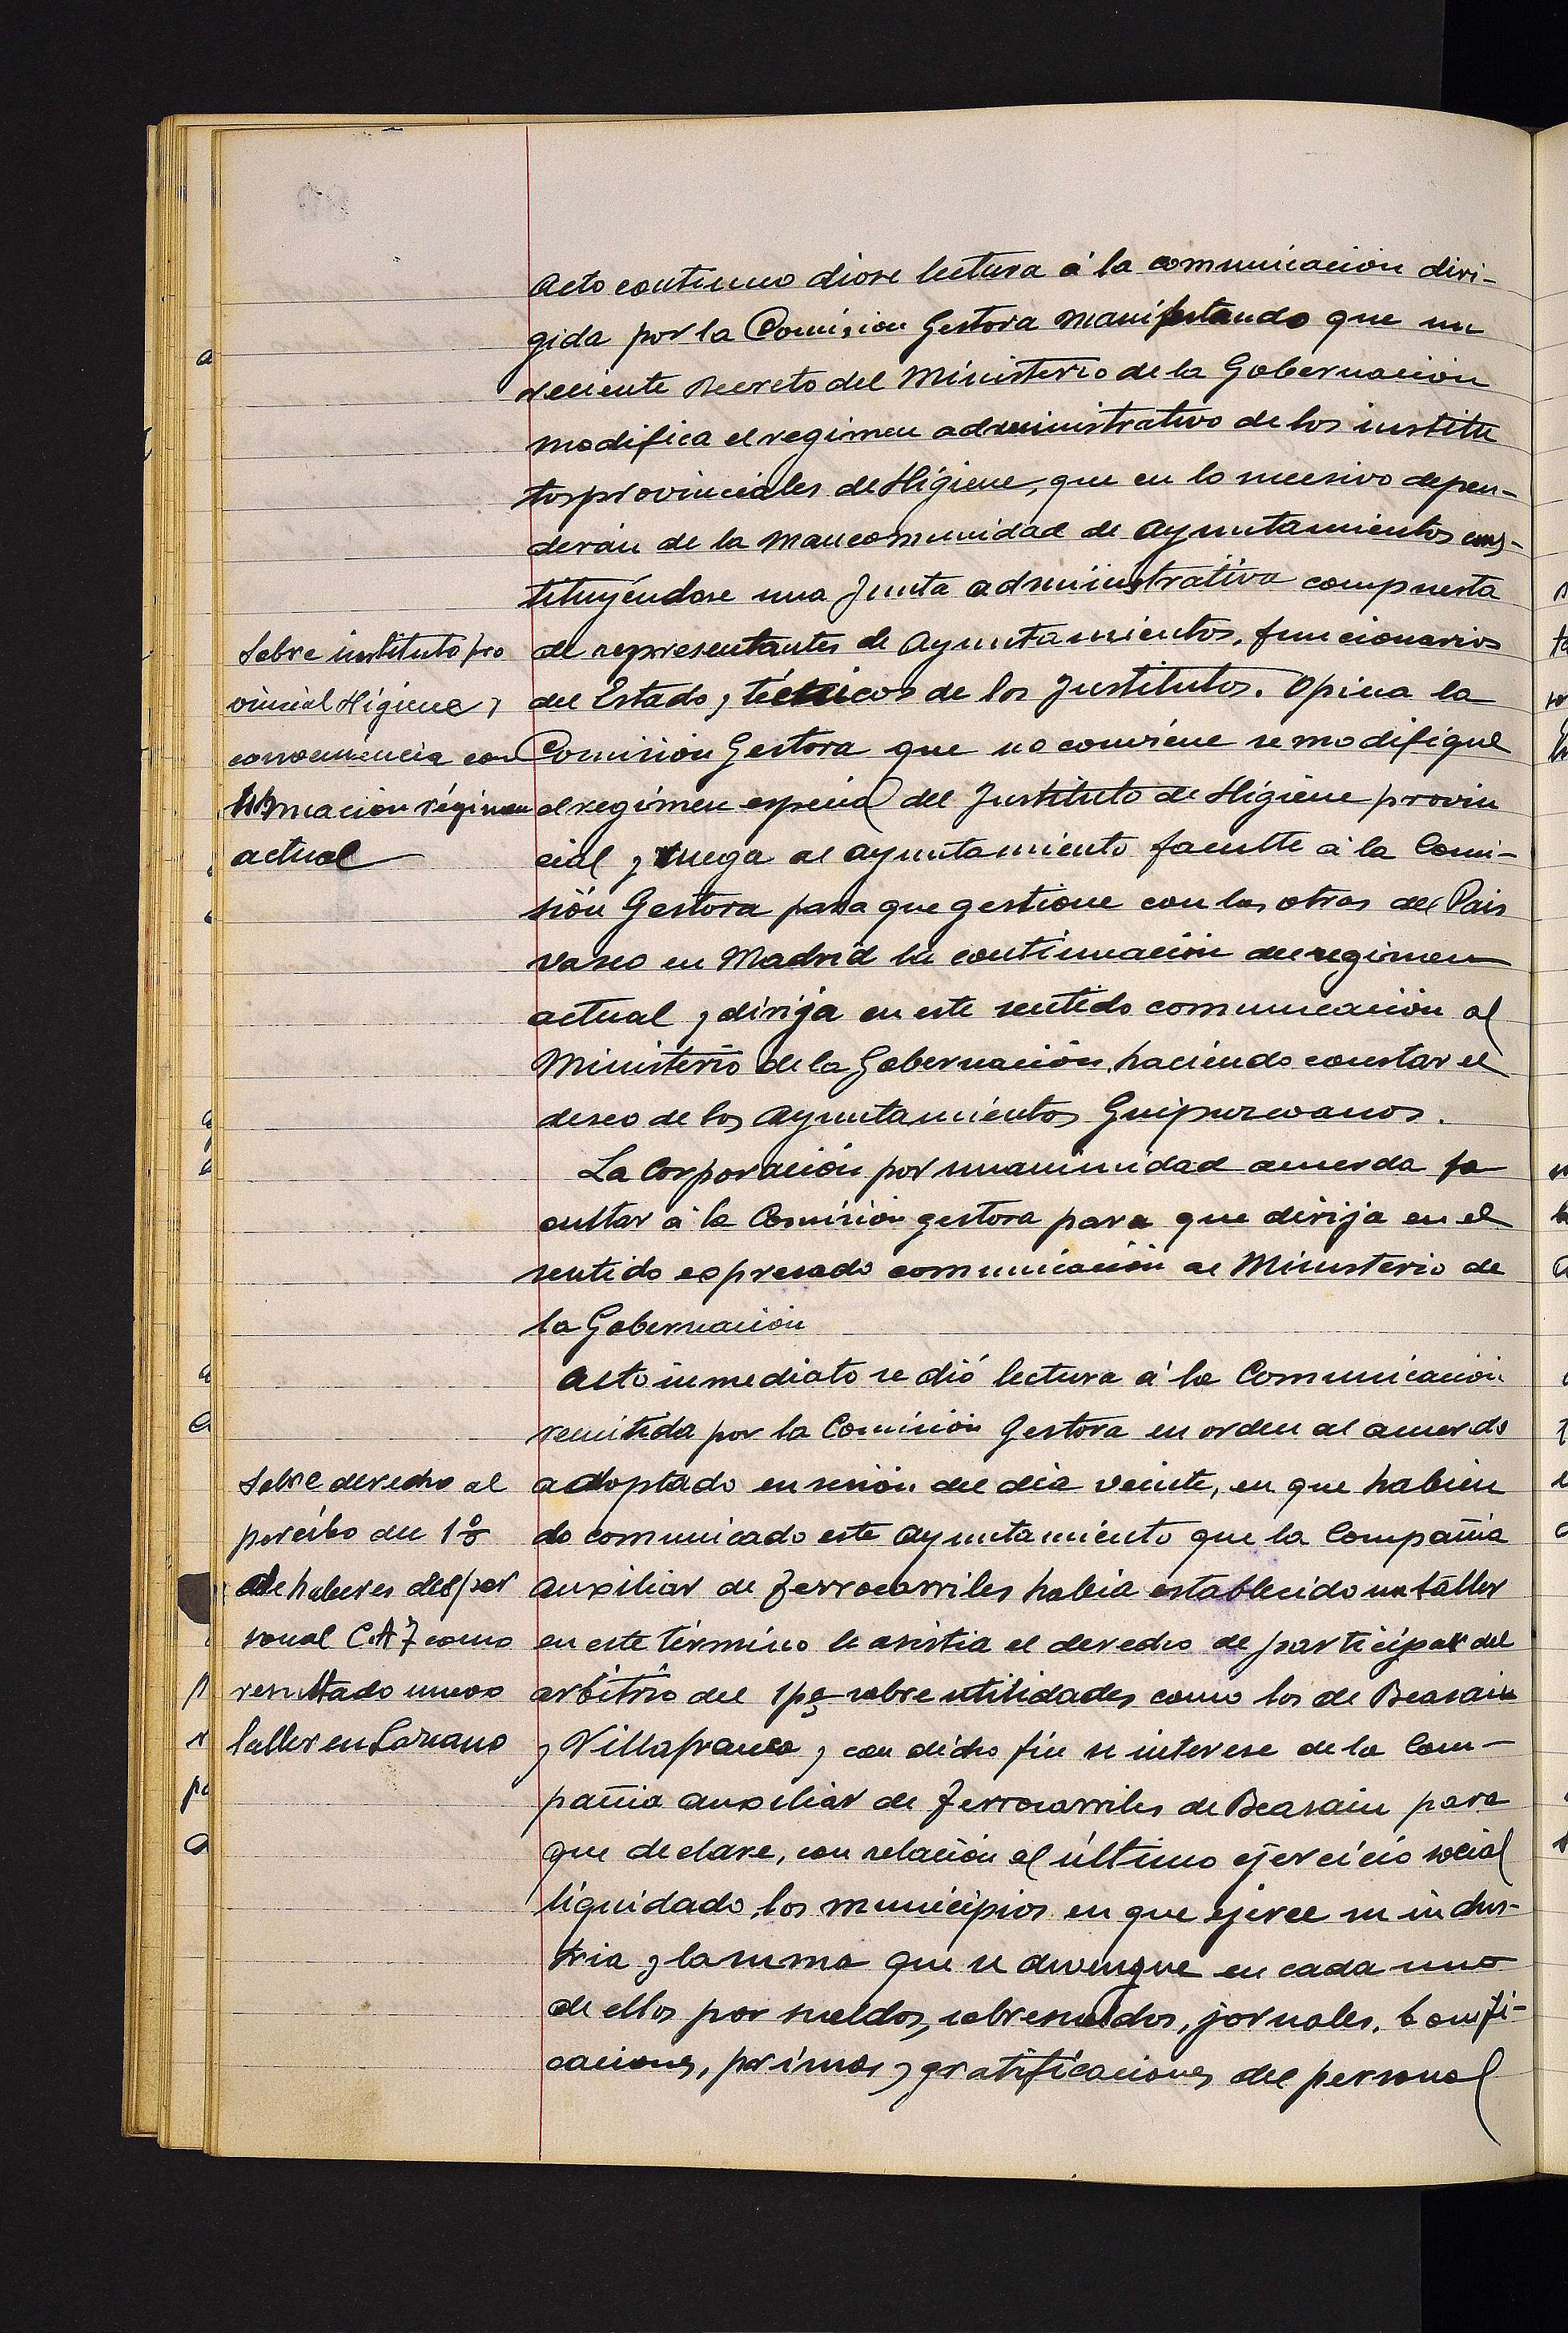 Acto continuo diose lectura á la comunicación diri-
gida por la Comision Gestora manifestando que un
reciente Decreto del Ministerio de la Gobernación
modifica el regimen administrativo de los institu
tos provinciales de Higiene, que en lo sucesivo depen-
derán de la mancomunidad de Ayuntamientos cons-
tituyéndose una Junta administrativa compuesta
de representantes de Ayuntamientos, funcionarios
del Estado y técnicos de los Institutos. Opina la
Comisión Gestora que no conviene se modifique
el regimen especial del Instituto de Higiene provin
cial y ruega al Ayuntamiento faculte á la Comi-
sión Gestora para que gestione con las otras del Pais
vasco en Madrid la continuación del regimen
actual y dirija en este sentido comunicación al
Ministerio de la Gobernación, haciendo constar el
deseo de los Ayuntamientos Guipuzcoanos.
La Corporación por unanimidad acuerda fa
cultar á la Comisión gestora para que dirija en el
sentido expresado comunicación al Ministerio de
la Gobernación
Sobre instituto pro
vincial Higiene y
conveniencia con
tinuación régimen
actual
Acto inmediato se dió lectura á la Comunicación
remitida por la Comisión Gestora en orden al acuerdo
adoptado en sesión del dia veinte, en que habien
do comunicado este Ayuntamiento que la Compañia
auxiliar de Ferrocarriles habia establecido un taller
en este término le asistia el derecho de participar del
arbitrio del 1 p% sobre utilidades como los de Beasain
y Villafranca y con dicho fin se interese de la Com-
pañia auxiliar de Ferrocarriles de Beasain para
que declare, con relación al último ejercicio social
liquidado, los municipios en que ejerce su indus-
tria y la suma que se devengue en cada uno
de ellos por sueldos, sobresueldos, jornales, bonifi-
caciones, primas y gratificaciones del personal
Sobre derecho al
percibo del 1%
de haberes del per
sonal C.A.F. como
resultado nuevo
taller en Lazcano